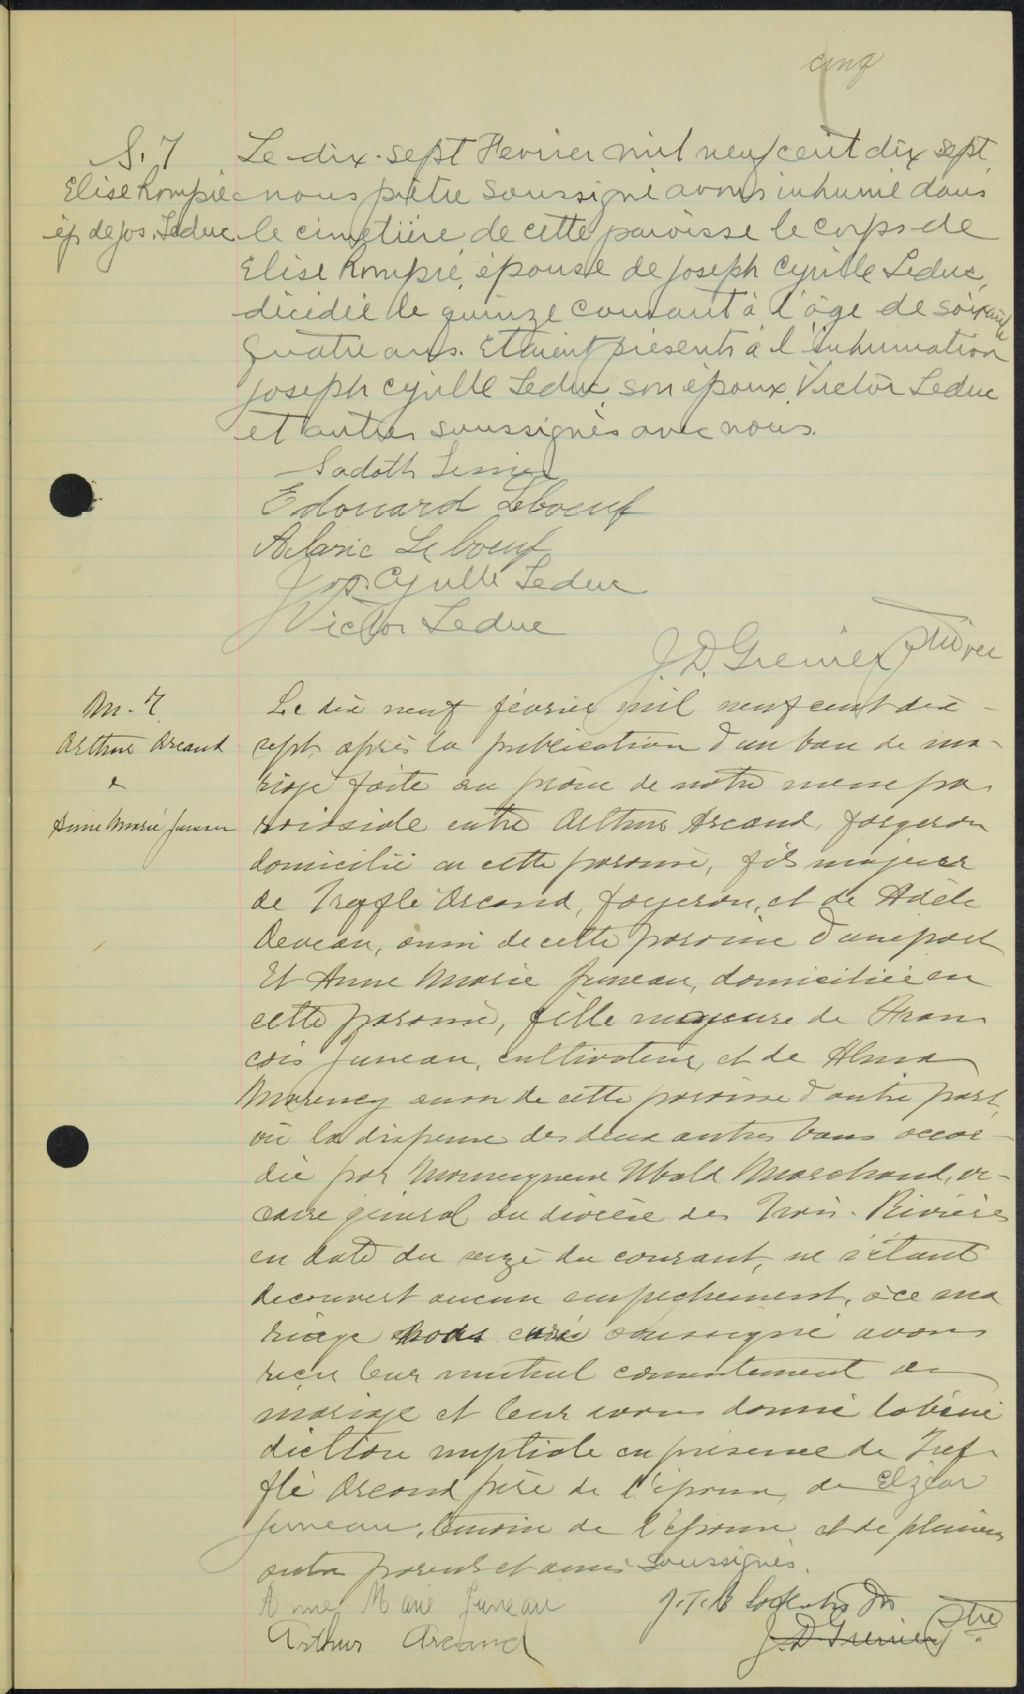 cinq
S. 7
Elise Rompré
ép de Jos. Leduc
Le dix-sept Fevrier mil neuf cent dix sept
nous prêtre soussigné avons inhumé dans
le cimetière de cette paroisse le corps de
Elise Rompré, épouse de Joseph Cyrille Leduc,
décédée le quinze courant à l'âge de soixante
quatre ans. Etaient présents à l'inhumation
Joseph Cyrille Leduc, son époux, Victor Leduc
et autres soussignés avec nous.
Sadoth
Edouard Leboeuf
Alaric Leboeuf
Jos. Cyrille Leduc
Victor Leduc
J. D. Grenier
M. 7
Arthur Arcand
&
Anne Marie Juneau
Le dix neuf février mil neuf cent dix-
sept, après la publication d'un ban de ma-
riage faite au prône de notre messe pa
roissiale entre Arthur Arcand, forgeron
domicilié en cette paroisse, fils majeur
de Trefflé Arcand, forgeron, et de Adèle
Deveau, aussi de cette paroisse d'une part
Et Anne Marie Juneau, domiciliée en
cette paroisse, fille majeure de Fran
cois Juneau, cultivateur, et de Alma
Marency aussi de cette paroisse d'autre part,
vu la dispense des deux autres bans accor-
dée par Monseigneur Ubald Marchand, vi-
caire général du diocèse des Trois-Rivières
en date du seize du courant, ne s'étant
decouvert aucun empechement, à ce ma
riage nous curé soussigné avons
reçu leur mutuel consentement de
mariage et leur avons donné la béné
diction nuptiale en présence de Tref-
flé Arcand père de l'époux, de Elzéar
Juneau, témoin de l'épouse et de plusieurs
autres parents et amis soussignés.
Anne Marie Juneau
Arthur Arcand
J. D. Grenier Ptre